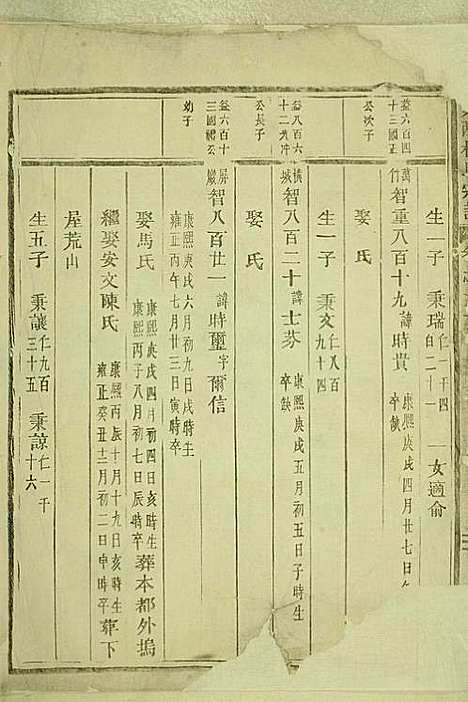 生一子 秉瑞 仁一千四百二十一 一女適俞
益六百四十三國正公次子
萬竹 智重八百十九 諱時賞 康熙庚戌四月廿七日午 卒缺
娶氏
生一子 秉文 仁八百九十四
益八百六十二興冲公長子
橫城 智八百二十 諱士芬 康熙庚戌五月初五日子時生 卒缺
娶氏
益六百十三國禮公幼子
屏巖 智八百廿一 諱時璽 字爾信
康熙庚戌六月初九日戌時生 雍正丙午七月廿三日寅時卒
娶馬氏 康熙庚戌四月初四日亥時生 康熙丙子八月初七日辰時卒 葬本都外塢
繼娶安文陳氏 康熙丙辰十月十九日亥時生 雍正癸丑十二月初二日申時卒 葬下
屋荒山
生五子 秉讓 仁九百三十五 秉諒 仁一千十六